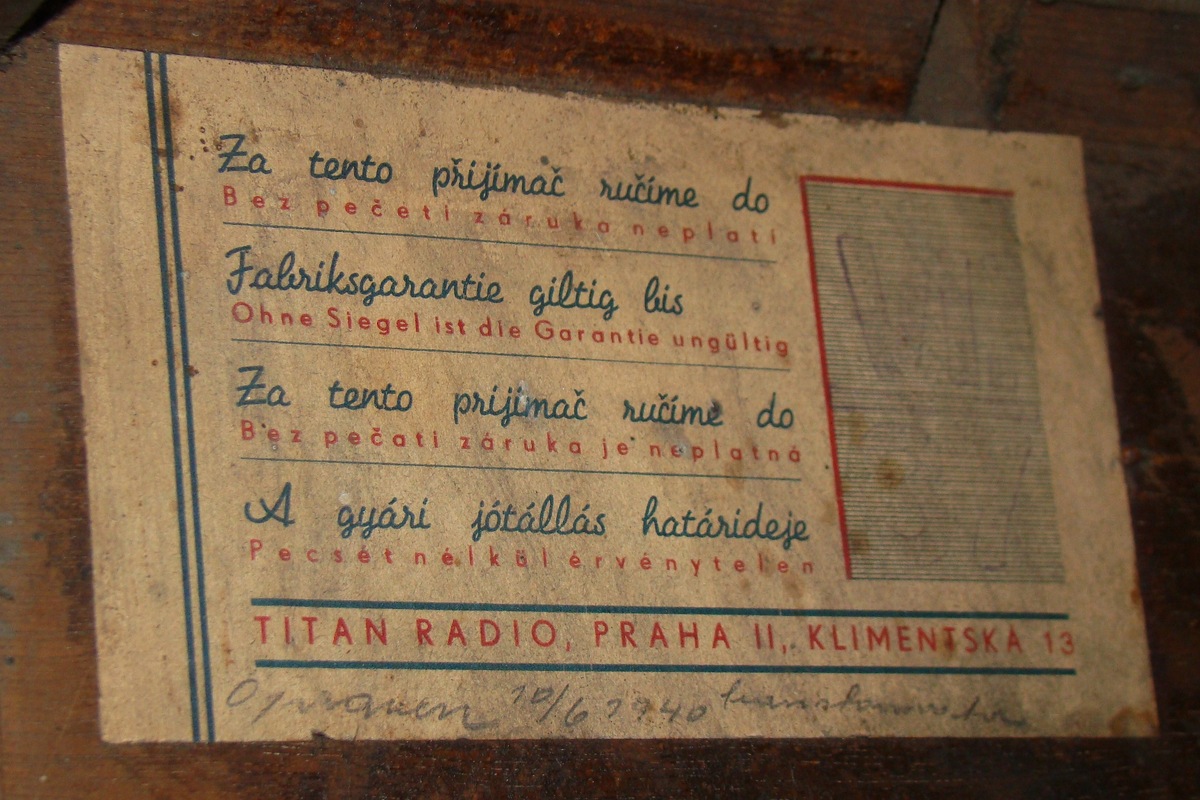 Za tento přijímač ručíme do
Bez pečeti záruka neplatí
Fabriksgarantie giltig bis
Ohne Siegel ist die Garantie ungültig
Za tento prijímač ručíme do
Bez pečati záruka je neplatná
A gyári jótállás határideje
Pecsét nélkül érvénytelen
TITAN RADIO, PRAHA II., KLIMENTSKÁ 13
Opraven 10/6 1940